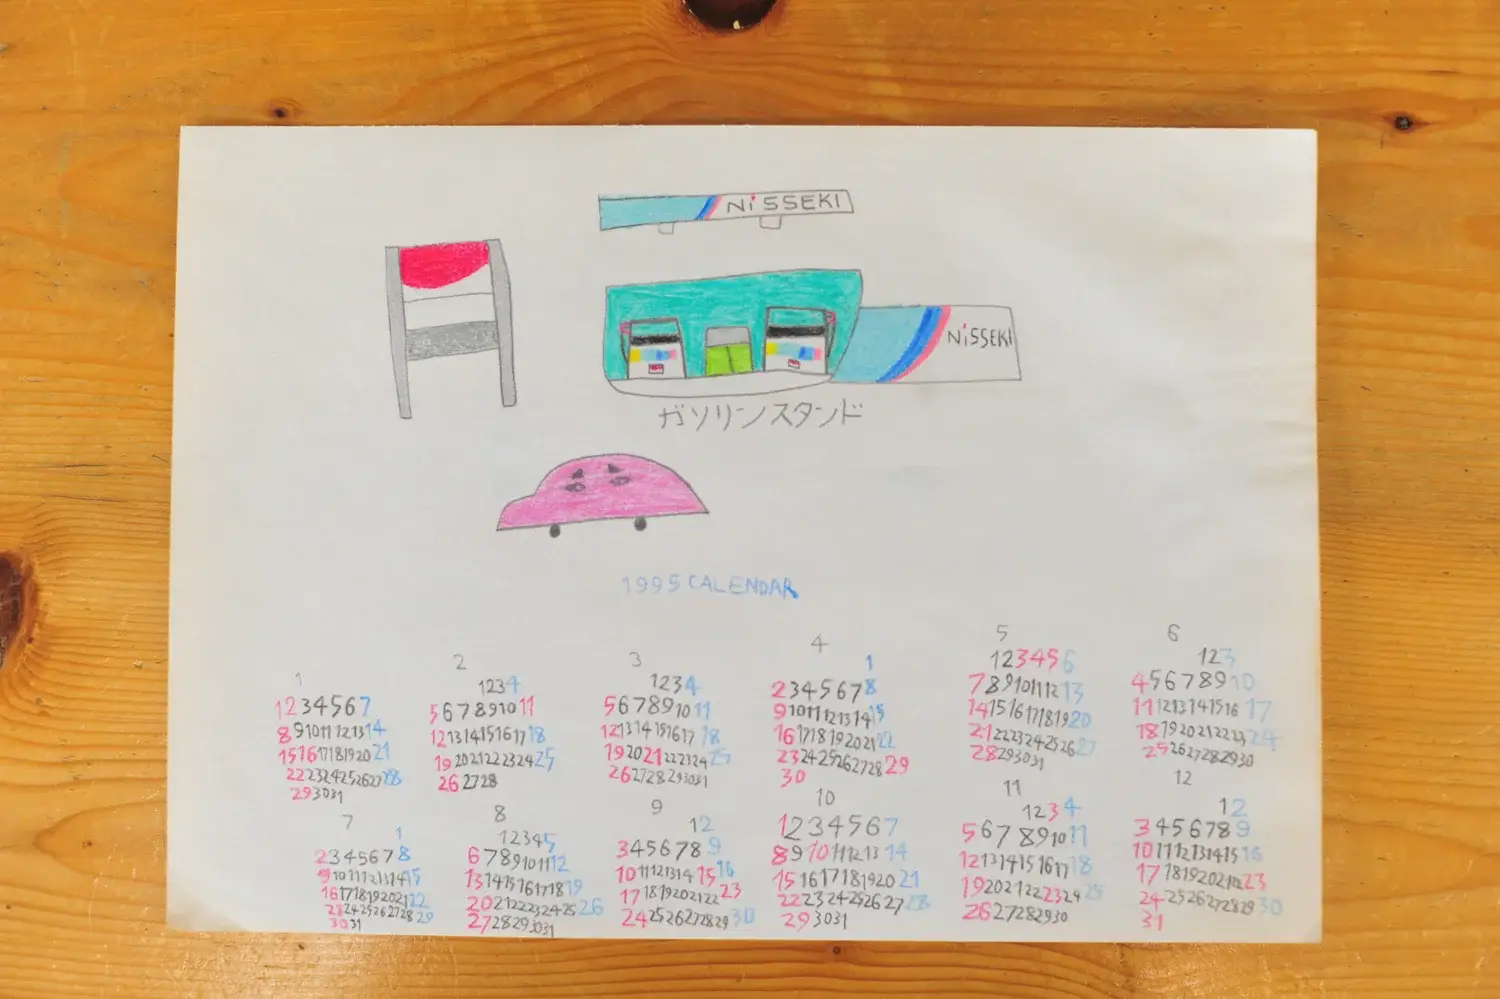 NiSSEKI
NiSSEKI
ガソリンスタンド
1995 CALENDAR
1
1 2 3 4 5 6 7
8 9 10 11 12 13 14
15 16 17 18 19 20 21
22 23 24 25 26 27 28
29 30 31
2
1 2 3 4
5 6 7 8 9 10 11
12 13 14 15 16 17 18
19 20 21 22 23 24 25
26 27 28
3
1 2 3 4
5 6 7 8 9 10 11
12 13 14 15 16 17 18
19 20 21 22 23 24 25
26 27 28 29 30 31
4
1
2 3 4 5 6 7 8
9 10 11 12 13 14 15
16 17 18 19 20 21 22
23 24 25 26 27 28 29
30
5
1 2 3 4 5 6
7 8 9 10 11 12 13
14 15 16 17 18 19 20
21 22 23 24 25 26 27
28 29 30 31
6
1 2 3
4 5 6 7 8 9 10
11 12 13 14 15 16 17
18 19 20 21 22 23 24
25 26 27 28 29 30
7
1
2 3 4 5 6 7 8
9 10 11 12 13 14 15
16 17 18 19 20 21 22
23 24 25 26 27 28 29
30 31
8
1 2 3 4 5
6 7 8 9 10 11 12
13 14 15 16 17 18 19
20 21 22 23 24 25 26
27 28 29 30 31
9
1 2
3 4 5 6 7 8 9
10 11 12 13 14 15 16
17 18 19 20 21 22 23
24 25 26 27 28 29 30
10
1 2 3 4 5 6 7
8 9 10 11 12 13 14
15 16 17 18 19 20 21
22 23 24 25 26 27 28
29 30 31
11
1 2 3 4
5 6 7 8 9 10 11
12 13 14 15 16 17 18
19 20 21 22 23 24 25
26 27 28 29 30
12
1 2
3 4 5 6 7 8 9
10 11 12 13 14 15 16
17 18 19 20 21 22 23
24 25 26 27 28 29 30
31